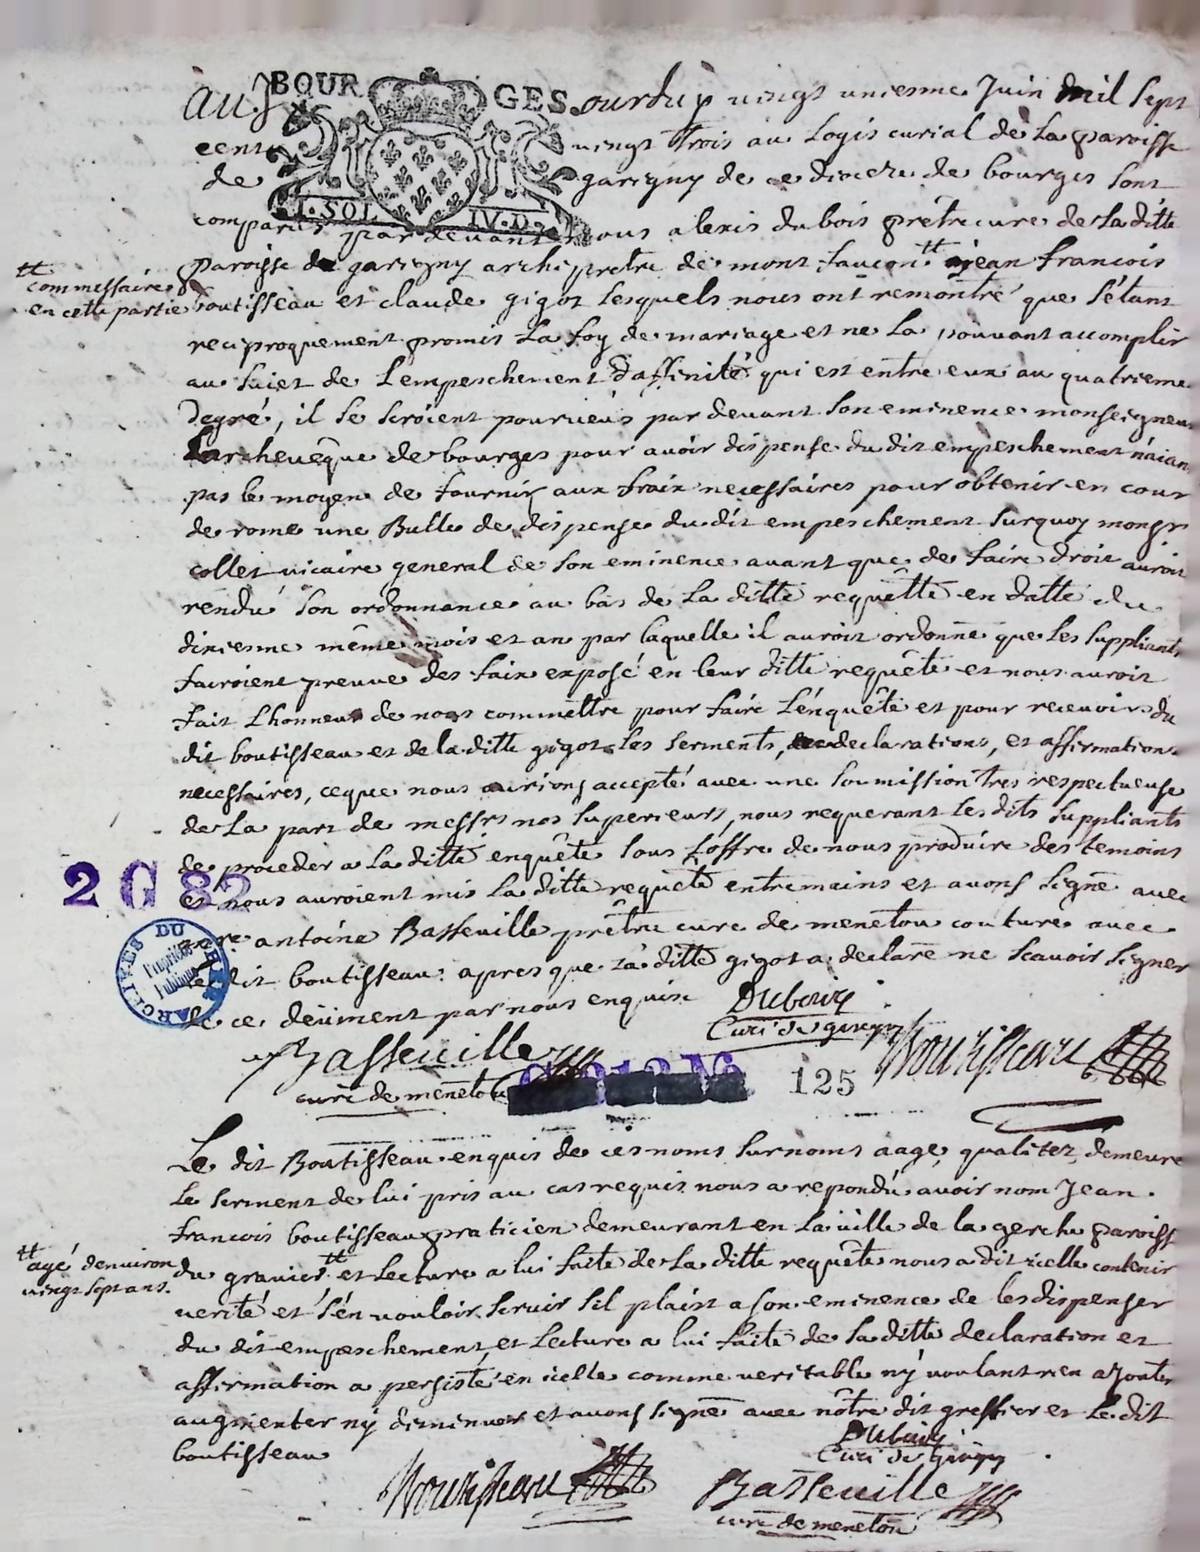 BOURGES
I. SOL IV. D.
aujourduy vingt unieme Juin mil sept
cent vingt trois au Logis curial de La paroisse
de garigny de ce dioceze de bourges sont
comparus par devant Nous alexis dubois prêtre cure de Laditte
paroisse de garigny archiprêtre de montfaucon tt jean francois
tt commessaire
en cette partie
boutisseau et claude gigot Lesquels nous ont remontré que s'étant
reciproquement promis La foy de mariage et ne La pouvant accomplir
au sujet de L'empeschement d'affinité qui est entre eux au quatrieme
degré, il se seroient pourveûs par devant son eminence monseigneur
Larchevêque de bourges pour avoir dispense du dit empeschement n'aiant
pas le moyen de fournir aux fraix necessaires pour obtenir en cour
de rome une Bulle de dispense du dit empeschement surquoy monsr
collet vicaire general de son eminence avant que de faire droit auroit
rendu son ordonnance au bas de La ditte requêtte en datte du
dixiesme même mois et an par laquelle il auroit ordonné que Les suppliants
fairoient preuve des faix exposé en leur ditte requête et nous auroit
fait L'honneur de nous commettre pour faire L'énquête et pour recevoir du
dit boutisseau et de la ditte gigot Les serments, declarations, et affirmations
necessaires, ceque nous aurions accepté avec une soumission tres respectueuse
de La part de messrs nos superieurs, nous requerant Les dits suppliants
de proceder a La ditte enquête sous L'offre de nous produire des temoins
et nous auroient mis La ditte requête entre mains et avons signé avec
2 G 82
antoine Basseuille prêtre cure de menetou couture avec
Le dit boutisseau apres que La ditte gigot a declaré ne scavoir signer
de ce deüment par nous enquise
ARCHIVES DU CHER
Propriété
Publique
Dubois
Curé de girigny
Basseuille
curé de menetou
Boutisseau
125
Le dit Boutisseau enquis de ces noms surnoms aage, qualitez, demeure
Le serment de lui pris au cas requis nous a repondu avoir nom Jean
francois boutisseau praticien demeurant en La ville de la gerche paroisse
tt agé denviron
vingt sept ans.
du gravier tt et Lecture a lui faite de La ditte requête nous a dit icelle contenir
verité et s'én vouloir servir s'il plaist a son eminence de les dispenser
du dit empeschement, et Lecture a lui faite de La ditte declaration et
affirmation a persisté en icelle comme veritable n'y voulant rien ajouter
augmenter ny diminuer et avons signé avec nôtre dit greffier et Le dit
boutisseau
Dubois
Curé de girigny
Boutisseau
Basseuille
curé de menetou